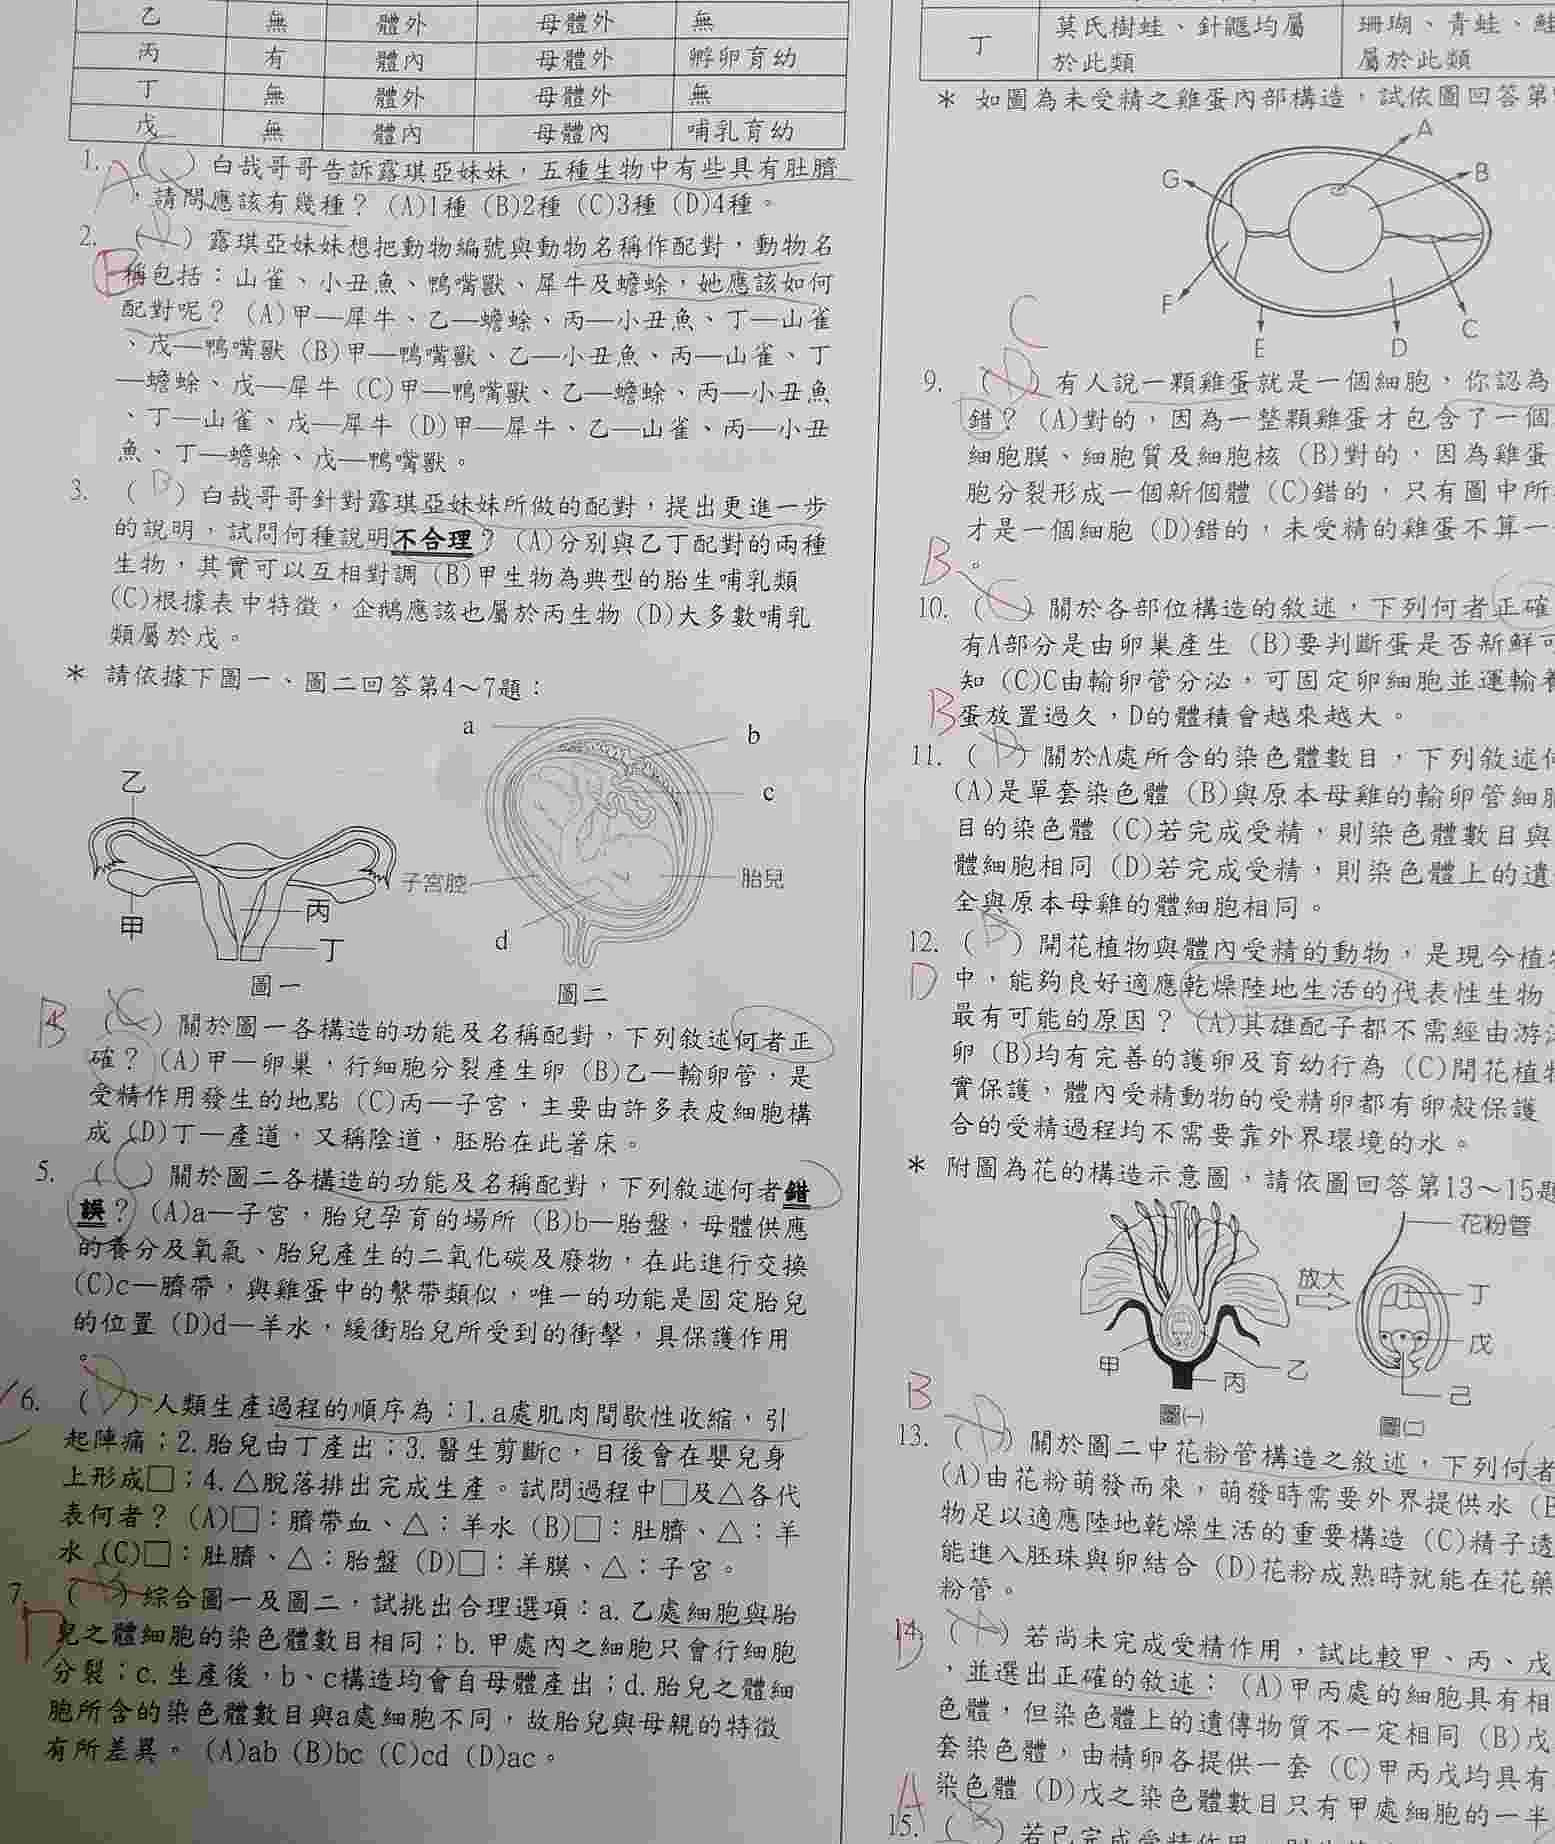 乙 無 體外 母體外 無
丙 有 體內 母體外 孵卵育幼
丁 無 體外 母體外 無
戊 無 體內 母體內 哺乳育幼
1. ( )白哉哥哥告訴露琪亞妹妹，五種生物中有些具有肚臍
A
，請問應該有幾種？(A)1種 (B)2種 (C)3種 (D)4種。
2. ( )露琪亞妹妹想把動物編號與動物名稱作配對，動物名
B
稱包括：山雀、小丑魚、鴨嘴獸、犀牛及蟾蜍，她應該如何
配對呢？(A)甲—犀牛、乙—蟾蜍、丙—小丑魚、丁—山雀
、戊—鴨嘴獸 (B)甲—鴨嘴獸、乙—小丑魚、丙—山雀、丁
—蟾蜍、戊—犀牛 (C)甲—鴨嘴獸、乙—蟾蜍、丙—小丑魚
、丁—山雀、戊—犀牛 (D)甲—犀牛、乙—山雀、丙—小丑
魚、丁—蟾蜍、戊—鴨嘴獸。
3. (B)白哉哥哥針對露琪亞妹妹所做的配對，提出更進一步
的說明，試問何種說明不合理？(A)分別與乙丁配對的兩種
生物，其實可以互相對調 (B)甲生物為典型的胎生哺乳類
(C)根據表中特徵，企鵝應該也屬於丙生物 (D)大多數哺乳
類屬於戊。
＊ 請依據下圖一、圖二回答第4～7題：
乙
甲
丙
丁
圖一
a
b
c
子宮腔
胎兒
d
圖二
4. (C)關於圖一各構造的功能及名稱配對，下列敘述何者正
B
確？(A)甲—卵巢，行細胞分裂產生卵 (B)乙—輸卵管，是
受精作用發生的地點 (C)丙—子宮，主要由許多表皮細胞構
成 (D)丁—產道，又稱陰道，胚胎在此著床。
5. (C)關於圖二各構造的功能及名稱配對，下列敘述何者錯
誤？(A)a—子宮，胎兒孕育的場所 (B)b—胎盤，母體供應
的養分及氧氣、胎兒產生的二氧化碳及廢物，在此進行交換
(C)c—臍帶，與雞蛋中的繫帶類似，唯一的功能是固定胎兒
的位置 (D)d—羊水，緩衝胎兒所受到的衝擊，具保護作用
。
6. ( )人類生產過程的順序為：1.a處肌肉間歇性收縮，引
起陣痛；2.胎兒由丁產出；3.醫生剪斷c，日後會在嬰兒身
上形成□；4.△脫落排出完成生產。試問過程中□及△各代
表何者？(A)□：臍帶血、△：羊水 (B)□：肚臍、△：羊
水 (C)□：肚臍、△：胎盤 (D)□：羊膜、△：子宮。
7. ( )綜合圖一及圖二，試挑出合理選項：a.乙處細胞與胎
D
兒之體細胞的染色體數目相同；b.甲處內之細胞只會行細胞
分裂；c.生產後，b、c構造均會自母體產出；d.胎兒之體細
胞所含的染色體數目與a處細胞不同，故胎兒與母親的特徵
有所差異。(A)ab (B)bc (C)cd (D)ac。
丁 莫氏樹蛙、針鼴均屬 珊瑚、青蛙、鮭
於此類 屬於此類
＊ 如圖為未受精之雞蛋內部構造，試依圖回答第
A
B
G
F
E
D
C
C
9. (D)有人說一顆雞蛋就是一個細胞，你認為
錯？(A)對的，因為一整顆雞蛋才包含了一個
細胞膜、細胞質及細胞核 (B)對的，因為雞蛋
胞分裂形成一個新個體 (C)錯的，只有圖中所
才是一個細胞 (D)錯的，未受精的雞蛋不算一
。
B
10. (C)關於各部位構造的敘述，下列何者正確
有A部分是由卵巢產生 (B)要判斷蛋是否新鮮可
知 (C)C由輸卵管分泌，可固定卵細胞並運輸養
蛋放置過久，D的體積會越來越大。
B
11. (D)關於A處所含的染色體數目，下列敘述何
(A)是單套染色體 (B)與原本母雞的輸卵管細胞
目的染色體 (C)若完成受精，則染色體數目與
體細胞相同 (D)若完成受精，則染色體上的遺
全與原本母雞的體細胞相同。
12. (B)開花植物與體內受精的動物，是現今植
D
中，能夠良好適應乾燥陸地生活的代表性生物
最有可能的原因？(A)其雄配子都不需經由游
卵 (B)均有完善的護卵及育幼行為 (C)開花植
實保護，體內受精動物的受精卵都有卵殼保護
合的受精過程均不需要靠外界環境的水。
＊ 附圖為花的構造示意圖，請依圖回答第13～15題
甲
乙
丙
圖(一)
放大
花粉管
丁
戊
己
圖(二)
B
13. (D)關於圖二中花粉管構造之敘述，下列何者
(A)由花粉萌發而來，萌發時需要外界提供水 (B
物足以適應陸地乾燥生活的重要構造 (C)精子透
能進入胚珠與卵結合 (D)花粉成熟時就能在花藥
粉管。
14. (A)若尚未完成受精作用，試比較甲、丙、戊
D
，並選出正確的敘述：(A)甲丙處的細胞具有相
色體，但染色體上的遺傳物質不一定相同 (B)戊
套染色體，由精卵各提供一套 (C)甲丙戊均具有
染色體 (D)戊之染色體數目只有甲處細胞的一半
A
15. ( )若已完成受精作用